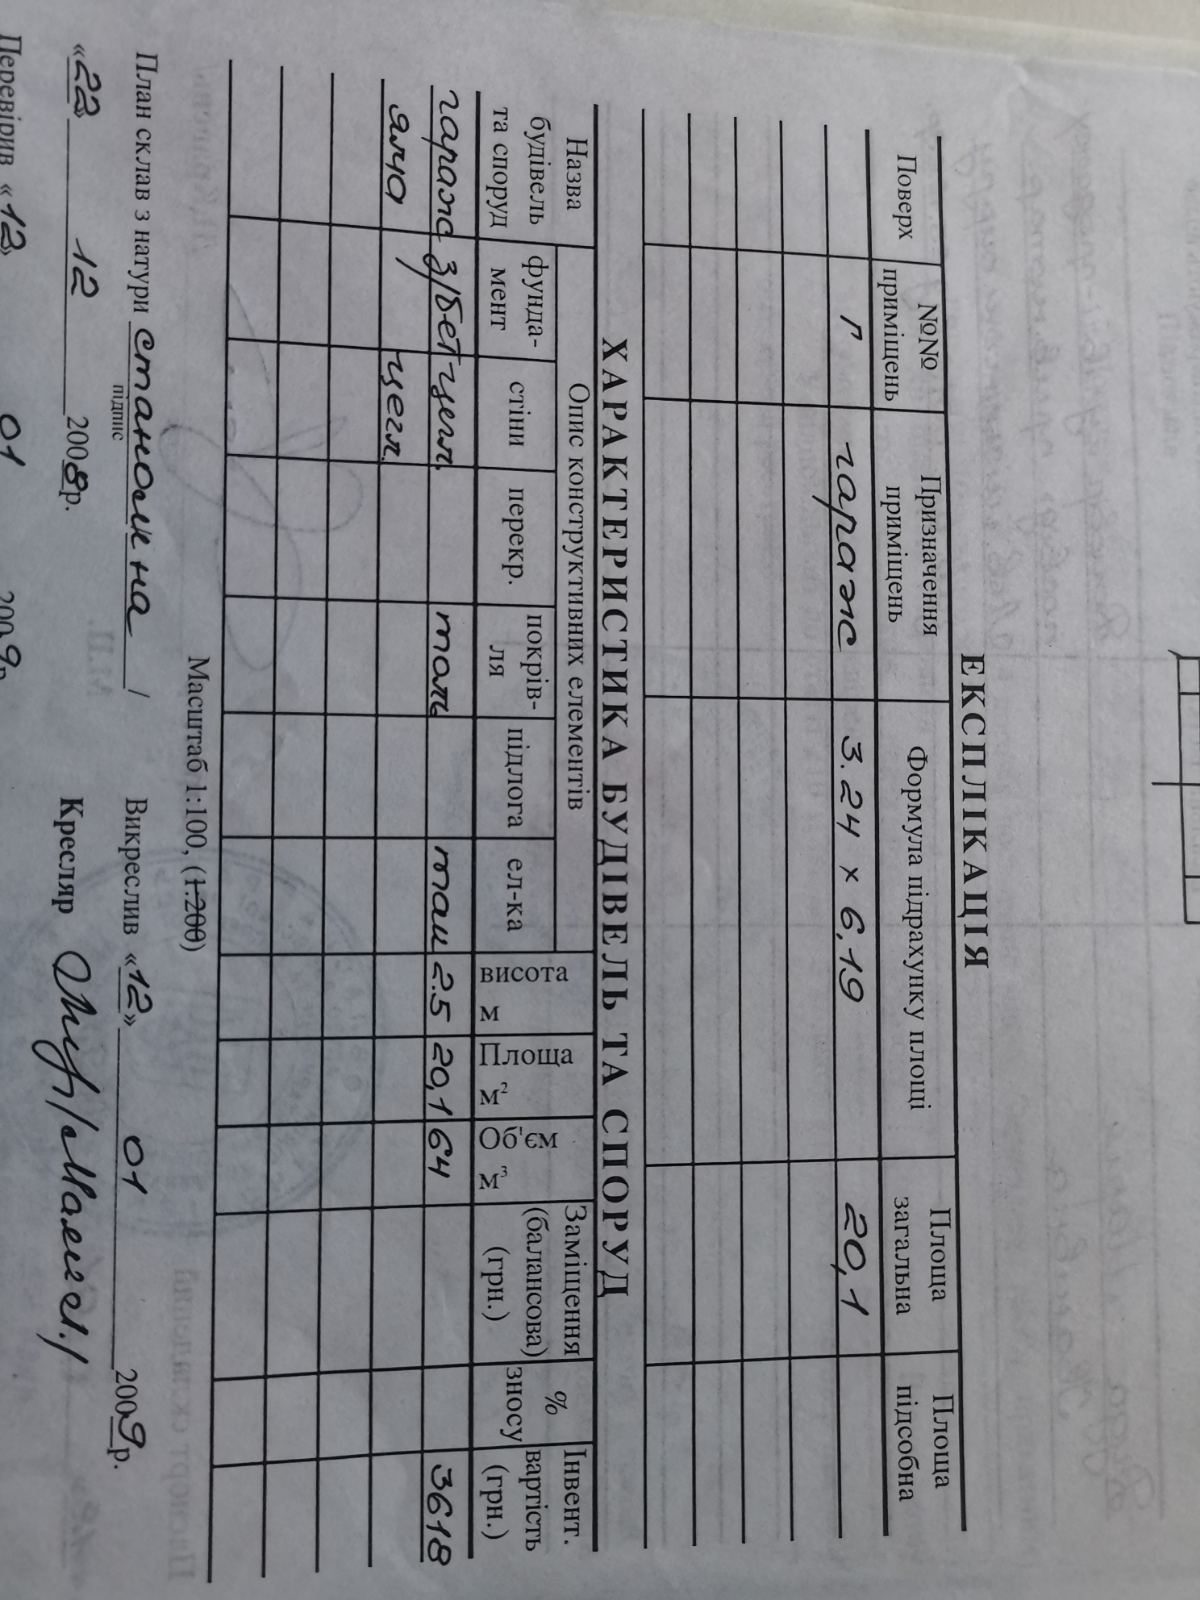 ЕКСПЛІКАЦІЯ
Поверх №№ приміщень Призначення приміщень Формула підрахунку площі Площа загальна Площа підсобна
Г гараж 3.24 x 6,19 20,1
ХАРАКТЕРИСТИКА БУДІВЕЛЬ ТА СПОРУД
Назва будівель та споруд Опис конструктивних елементів висота м Площа м² Об'єм м³ Заміщення (балансова) (грн.) % зносу Інвент. вартість (грн.)
фунда-мент стіни перекр. покрів-ля підлога ел-ка
гараж з/бет цегл. толь так 2.5 20,1 64 3618
яма / цегл.
Масштаб 1:100, (1:200)
План склав з натури / Викреслив «12» 01 2009р.
підпис
«22» 12 2008р. Кресляр
Перевірив «12» 01 2009р